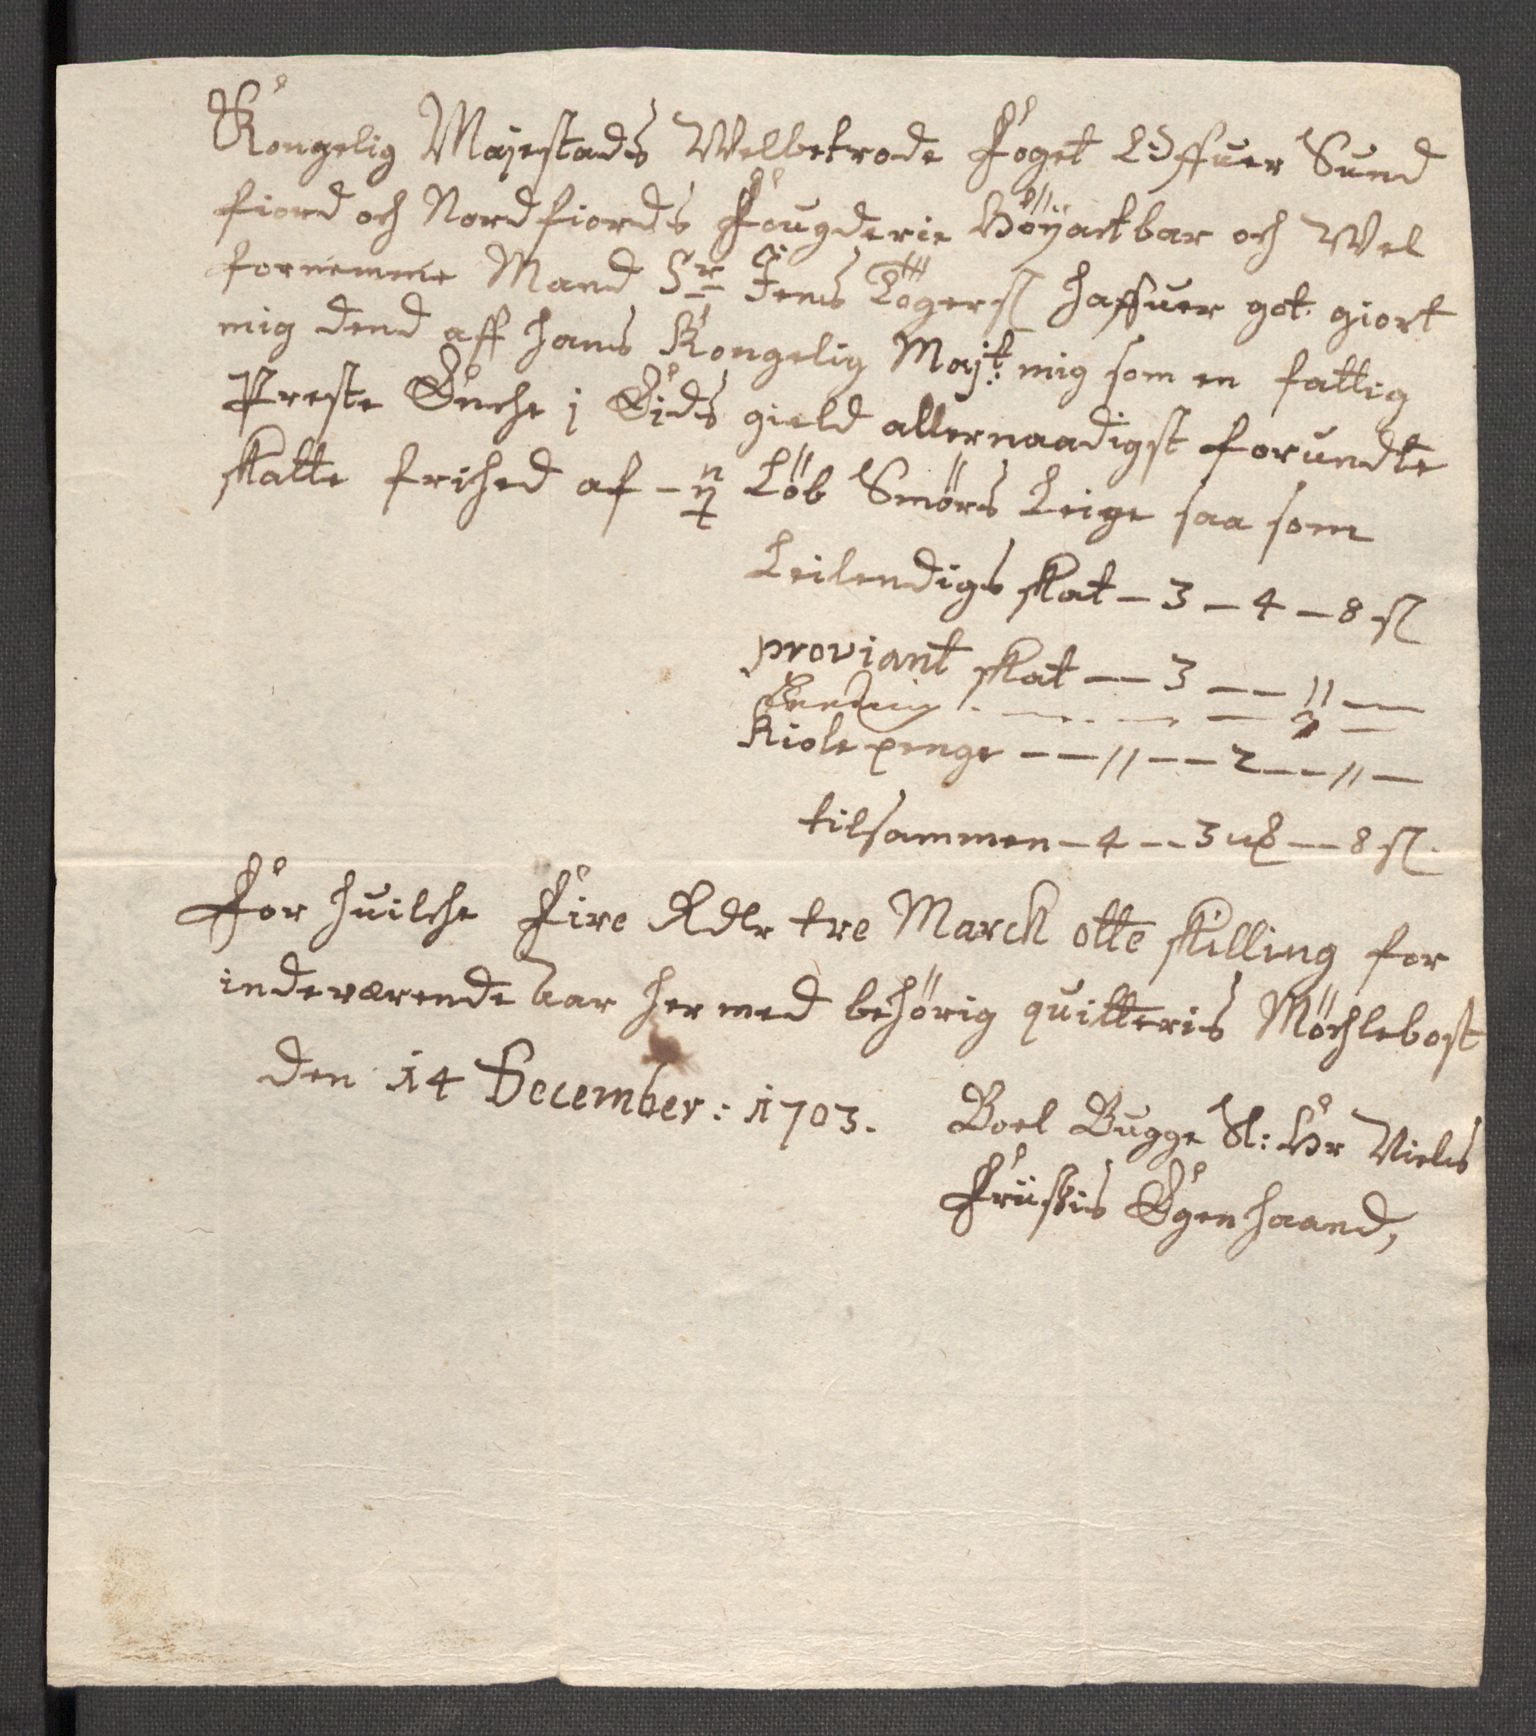 Kongelig Majestads Welbetrode Foget Offuer Sund
fiord och Nordfiords Fougderie Höÿactbar och Wel
fornemme Mand Sr Jens Lögers haffuer got giort
mig dend aff hans Kongelig Majt: mig som en fattig
Preste Enche i Eids gield allernaadigst forundte
skatte frihed af Löb Smörs Leige saa som
Leilendigs skat — 3 — 4 — 8 s
proviant skat — 3 — " —
3 —
Kiole penge — " — 2 — " —
tilsammen — 4 — 3 — 8 s
For huilche Fire Rdlr tre Marck otte skilling for
indeværende aar hermed behörig quitteris Möchlebost
den 14 December: 1703.
Boel Bugge Sl: Hr Niels
Friisis Egen haand,